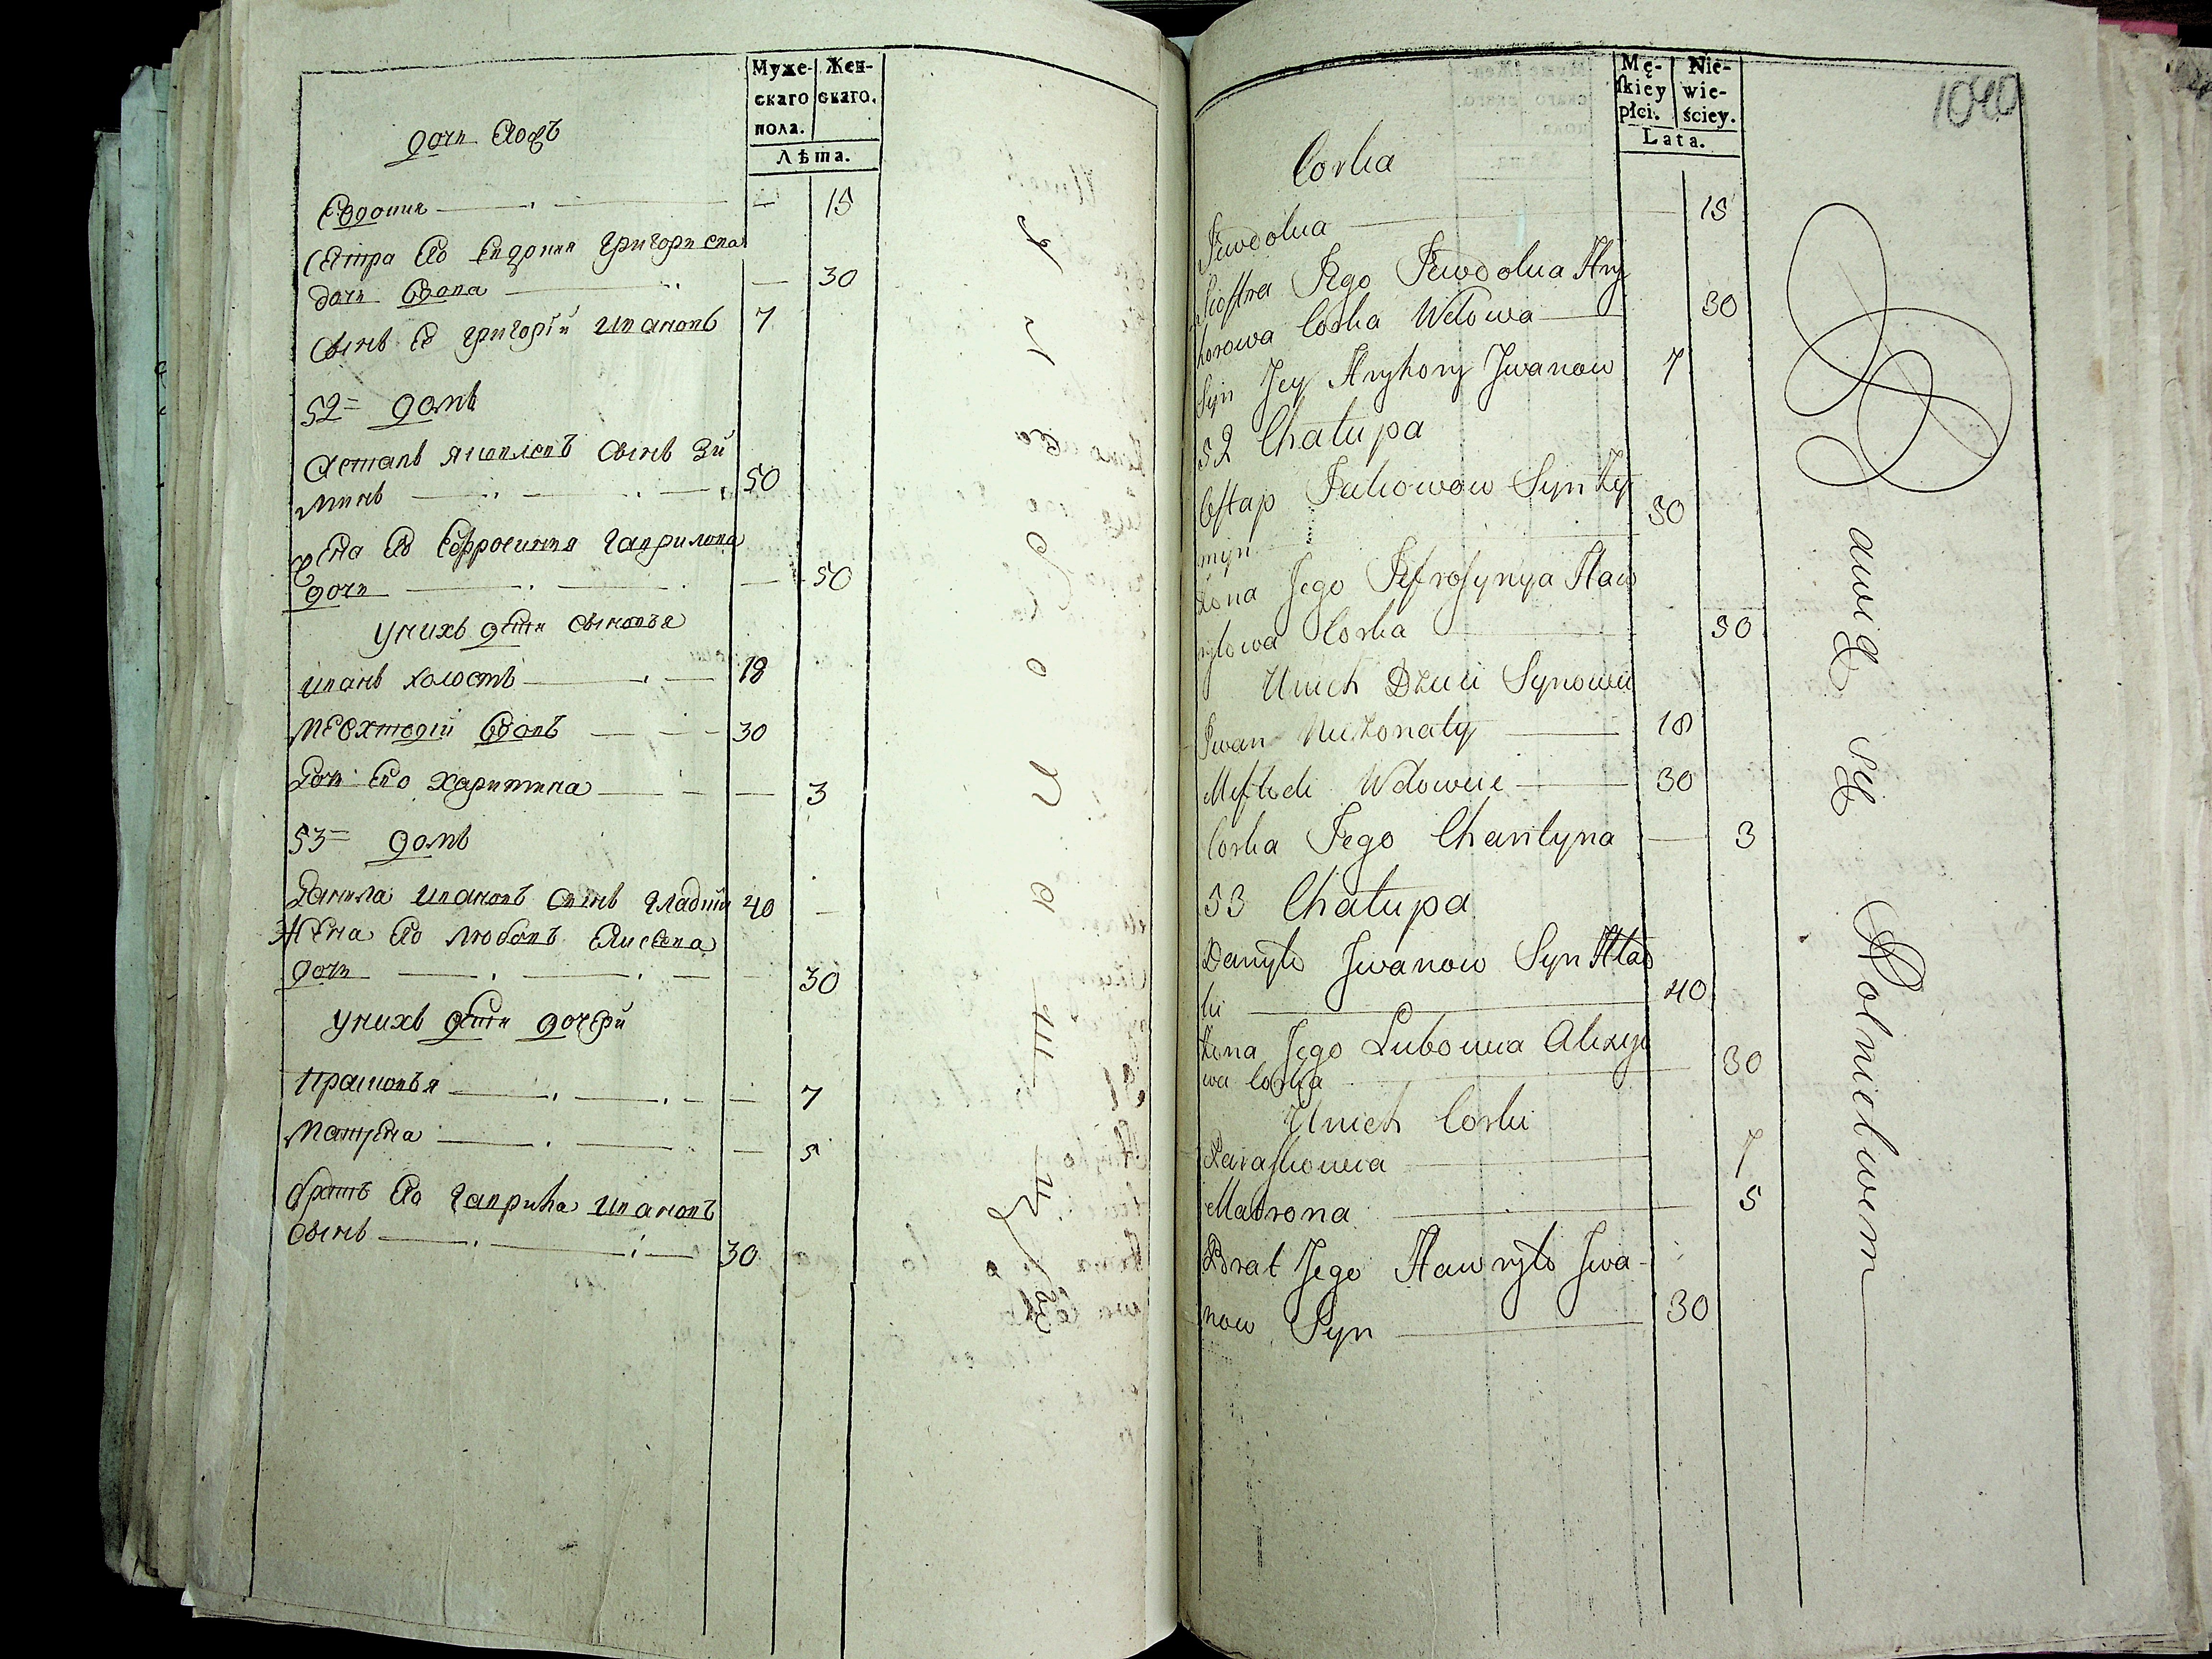 Муже- Жен-
скаго скаго.
пола.
Лѣта.
дочь
Евдокия — 15
Сестра Его Евдокия Григорьева
дочь Вдова — 30
Сынъ Ее Григорій Ивановъ 7
52= домъ
Остапъ Яковлевъ Сынъ Зи
минъ 50
Жена Его Ефросиния Гаврилова
дочь — 50
У нихъ дѣти Сыновья
Иванъ холостъ 18
Мефтодiй Вдовъ 30
Дочь Его Харитина — 3
53= домъ
Данила Ивановъ Сынъ Гладкий 40
Жена Его Любовь
дочь — 30
У нихъ дѣти дочери
Прасковья — 7
Матрена — 5
братъ Его Гаврила Ивановъ
Сынъ 30
Mę- Nie-
skiey wie-
płci. ściey.
Lata.
1040
Corka
Jewdokia — 15
Siostra Jego Jewdokia Hry
horowa Corka Wdowa 30
Syn Jey Hryhory Jwanow 7
52 Chałupa
Ostap Jakowow Syn Zy
myn 50
Żona Jego Jefrosynya Haw
ryłowa Corka 50
U nich Dzieci Synowie
Jwan Nieżonaty 18
Meftodi Wdowiec 30
Corka Jego Charytyna — 3
53 Chałupa
Danyło Jwanow Syn Hład
ki 40
Żona Jego Lubowia Alexije
wa Corka 30
U nich Corki
Paraskowia 7
Matrona 5
Brat Jego Hawryło Jwa-
now Syn 30
awią się Rolnictwem